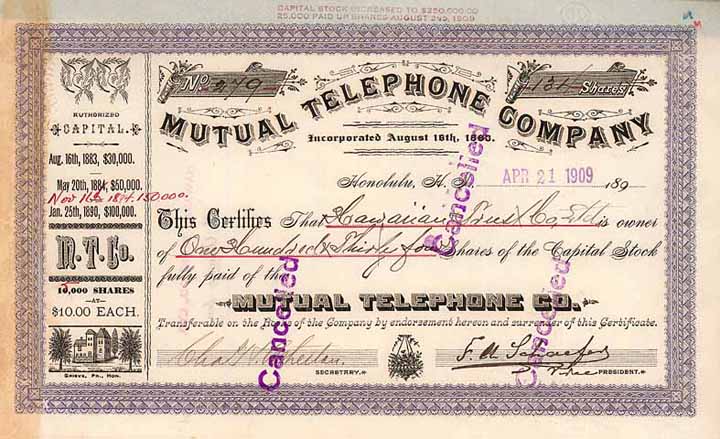 CAPITAL STOCK INCREASED TO $250,000.00
25,000 PAID UP SHARES AUGUST 2ND, 1909
No. 249
Shares
MUTUAL TELEPHONE COMPANY
Incorporated August 16th, 1883.
AUTHORIZED
CAPITAL.
Aug. 16th, 1883, $30,000.
May 20th, 1884, $50,000.
Jan. 25th, 1890, $100,000.
M. T. Co.
10,000 SHARES
—AT—
$10.00 EACH.
GRIEVE, PR., HON.
Honolulu, H. I. APR 21 1909 189
This Certifies That Hawaiian Trust Co. Ltd is owner
of One Hundred & Thirty four Shares of the Capital Stock
fully paid of the
MUTUAL TELEPHONE CO.
Transferable on the Books of the Company by endorsement hereon and surrender of this Certificate.
SECRETARY.
PRESIDENT.
Cancelled
Cancelled
Cancelled